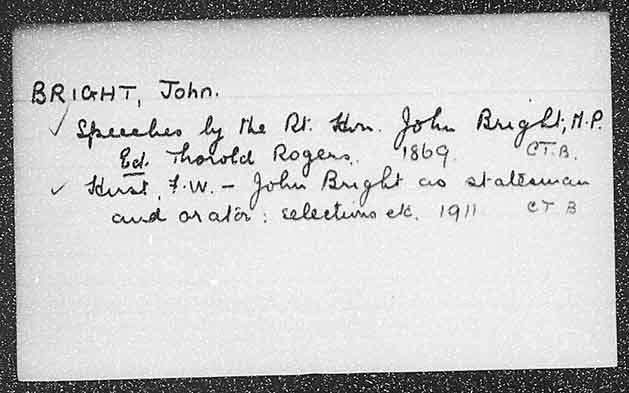 BRIGHT, John.
✓ Speeches by the Rt. Hon. John Bright, M.P.
Ed. Thorold Rogers. 1869. CT.B.
✓ Hirst, F.W. – John Bright as statesman
and orator: selections etc. 1911 CT B